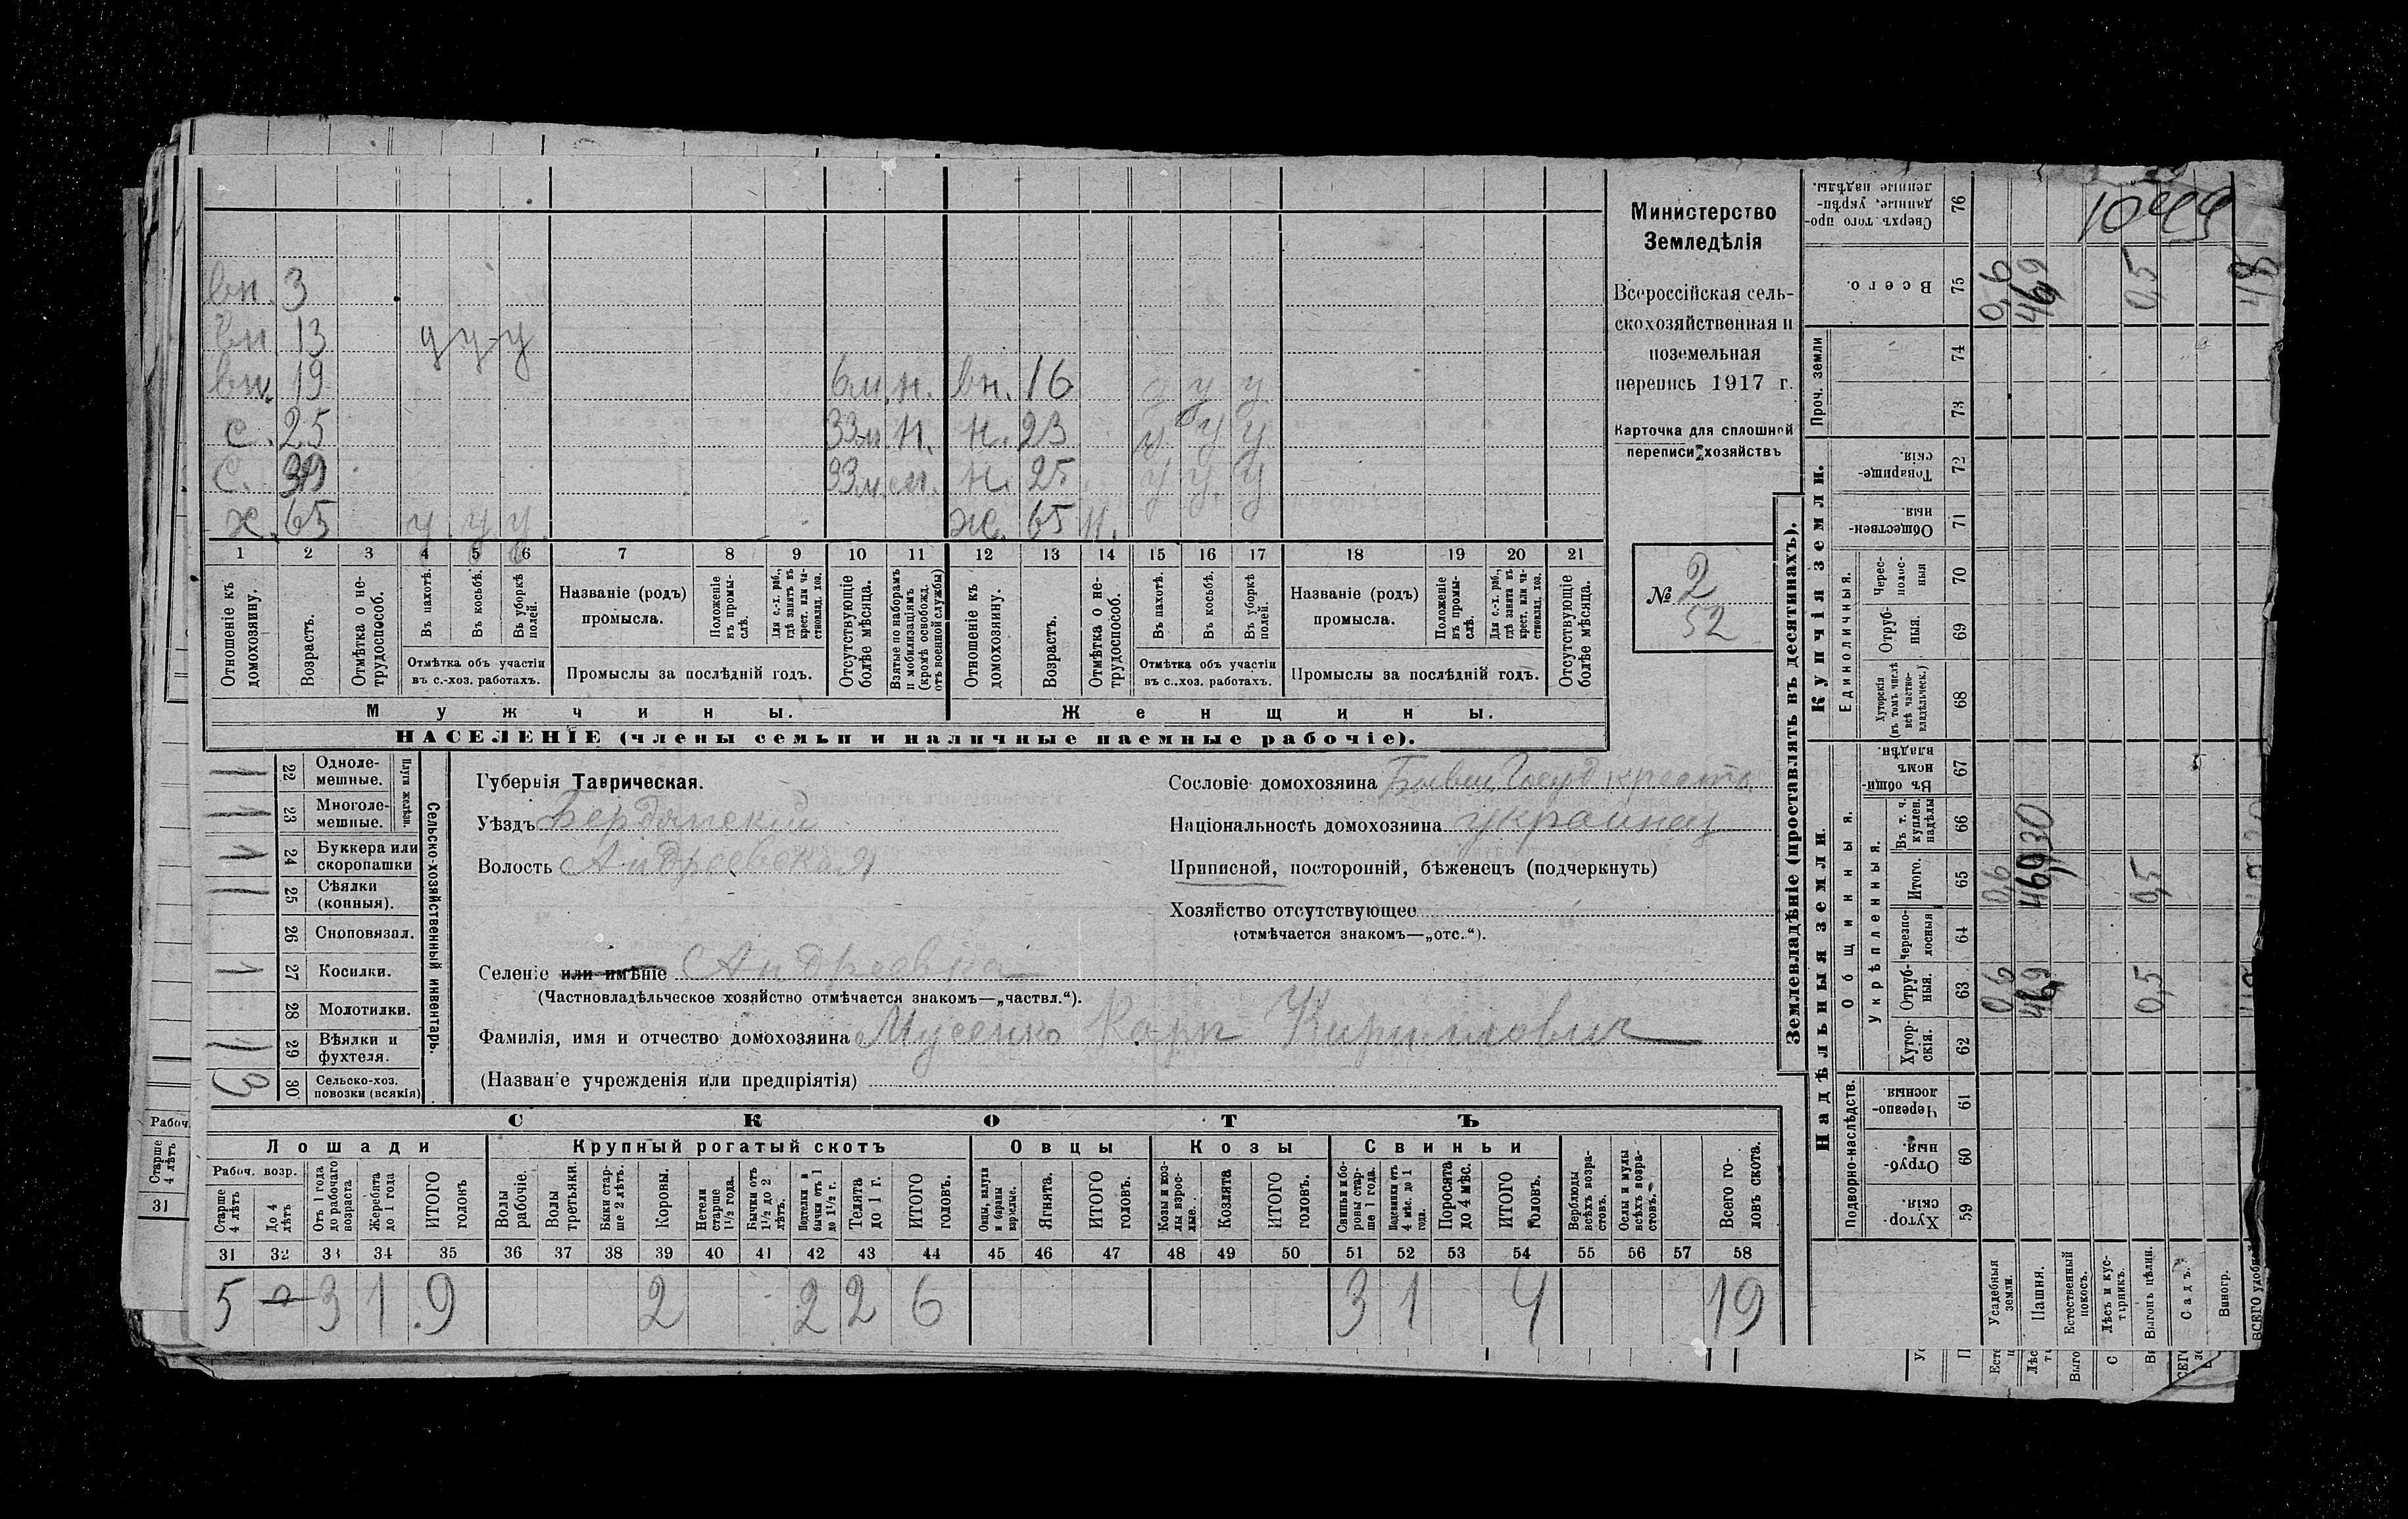 вн. 3
вн 13 у у у
вн. 19 6 м. н. вн. 16 у у у
с. 25 33 м н. н. 23 у у у
с. 39 33 м. м. н. 25 у у у
х. 65 у у у ж. 65 н.
1 2 3 4 5 6 7 8 9 10 11 12 13 14 15 16 17 18 19 20 21
Отношеніе къ домохозяину.
Возрастъ.
Отмѣтка о не-трудоспособ.
Въ пахотѣ.
Въ косьбѣ.
Въ уборкѣ полей.
Названіе (родъ) промысла.
Положеніе въ промы-слѣ.
Для с.-х. раб., гдѣ занятъ въ крест. или ча-стновлад. хоз.
Отсутствующіе болѣе мѣсяца.
Взятые по наборамъ и мобилизаціямъ (кромѣ освобожд. отъ военной службы)
Отношеніе къ домохозяину.
Возрастъ.
Отмѣтка о не-трудоспособ.
Въ пахотѣ.
Въ косьбѣ.
Въ уборкѣ полей.
Названіе (родъ) промысла.
Положеніе въ промы-слѣ.
Для с.-х. раб., гдѣ занята въ крест. или ча-стновлад. хоз.
Отсутствующіе болѣе мѣсяца.
Отмѣтка объ участіи въ с.-хоз. работахъ.
Промыслы за послѣдній годъ.
Отмѣтка объ участіи въ с.-хоз. работахъ.
Промыслы за послѣдній годъ.
Мужчины.
Женщины.
НАСЕЛЕНІЕ (члены семьи и наличные наемные рабочіе).
Министерство
Земледѣлія
Всероссійская сель-
скохозяйственная и
поземельная
перепись 1917 г.
Карточка для сплошной
переписи хозяйствъ
№ 2
52
22 Одноле-мешные.
23 Многоле-мешные.
Плуги желѣзн.
24 Буккера или скоропашки
25 Сѣялки (конныя).
26 Сноповязал.
27 Косилки.
28 Молотилки.
29 Вѣялки и фухтеля.
30 Сельско-хоз. повозки (всякія)
Сельско-хозяйственный инвентарь.
Губернія Таврическая.
Уѣздъ Бердянскій
Волость Андреевская
Селеніе или имѣніе Андреевка
(Частновладѣльческое хозяйство отмѣчается знакомъ—„частвл.“).
Фамилія, имя и отчество домохозяина Мусенко Карп Кириллович
(Названіе учрежденія или предпріятія)
Сословіе домохозяина Бывш. Госуд крестъ
Національность домохозяина украинец
Приписной, посторонній, бѣженецъ (подчеркнуть)
Хозяйство отсутствующее
(отмѣчается знакомъ—„отс.“).
СКОТЪ
Лошади Крупный рогатый скотъ Овцы Козы Свиньи
Рабоч. возр.
Старше 4 лѣтъ
До 4 лѣтъ
Отъ 1 года до рабочаго возраста
Жеребята до 1 года
ИТОГО головъ
Волы рабочіе.
Волы третьяки.
Быки стар-ше 2 лѣтъ.
Коровы.
Нетели старше 1½ года.
Бычки отъ 1½ до 2 лѣтъ.
Подтелки и бычки отъ 1 до 1½ г.
Телята до 1 г.
ИТОГО головъ.
Овцы, валухи и бараны взрослые.
Ягнята.
ИТОГО головъ.
Козы и коз-лы взрос-лые.
Козлята
ИТОГО головъ.
Свиньи и бо-ровы стар-ше 1 года.
Подсвинки отъ 4 мѣс. до 1 года.
Поросята до 4 мѣс.
ИТОГО головъ.
Верблюды всѣхъ возра-стовъ.
Ослы и мулы всѣхъ возра-стовъ.
Всего го-ловъ скота.
31 32 33 34 35 36 37 38 39 40 41 42 43 44 45 46 47 48 49 50 51 52 53 54 55 56 57 58
5 3 1 9 2 2 2 6 3 1 4 19
Землевладѣніе (проставлять въ десятинахъ).
Надѣльныя земли.
Купчія земли.
Проч. земли
Подворно-наслѣдств.
Общинныя.
Укрѣпленныя.
Единоличныя.
59 Хутор-скія.
60 Отруб-ныя.
61 Черезпо-лосныя
62 Хутор-скія.
63 Отруб-ныя.
64 Черезпо-лосныя
65 Итого.
66 Въ т. ч. куплен. надѣлы
67 Въ общин-номъ владѣн.
68 Хуторскія (въ томъ числѣ всѣ частно-владѣльческ.)
69 Отруб-ныя.
70 Черес-полос-ныя
71 Обществен-ныя
72 Товарище-скія.
73
74
75 Всего.
76 Сверхъ того про-данные, укрѣп-ленные надѣлы.
Усадебныя земли.
Пашня.
Естественный покосъ.
Лѣсъ и кус-тарникъ.
Выгонъ цѣлин.
Садъ.
Виногр.
ВСЕГО удобной
0,6 0,6 0,6
46,9 46,9 30 46,9
0,5 0,5 0,5
48
Рабоч.
Старше 4 лѣтъ
31